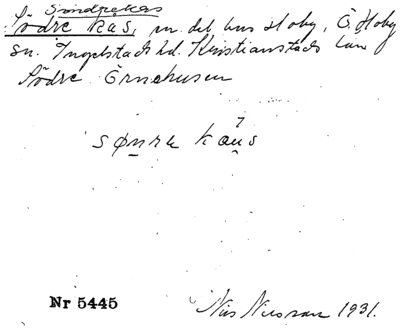 Söndrekås
Södre kås, en del hus Hoby, Ö. Hoby
sn. Ingelstads hd. Kristianstads län
Södre Örnahusen
sønrə kås
Nr 5445
Nils Nilsson 1931.